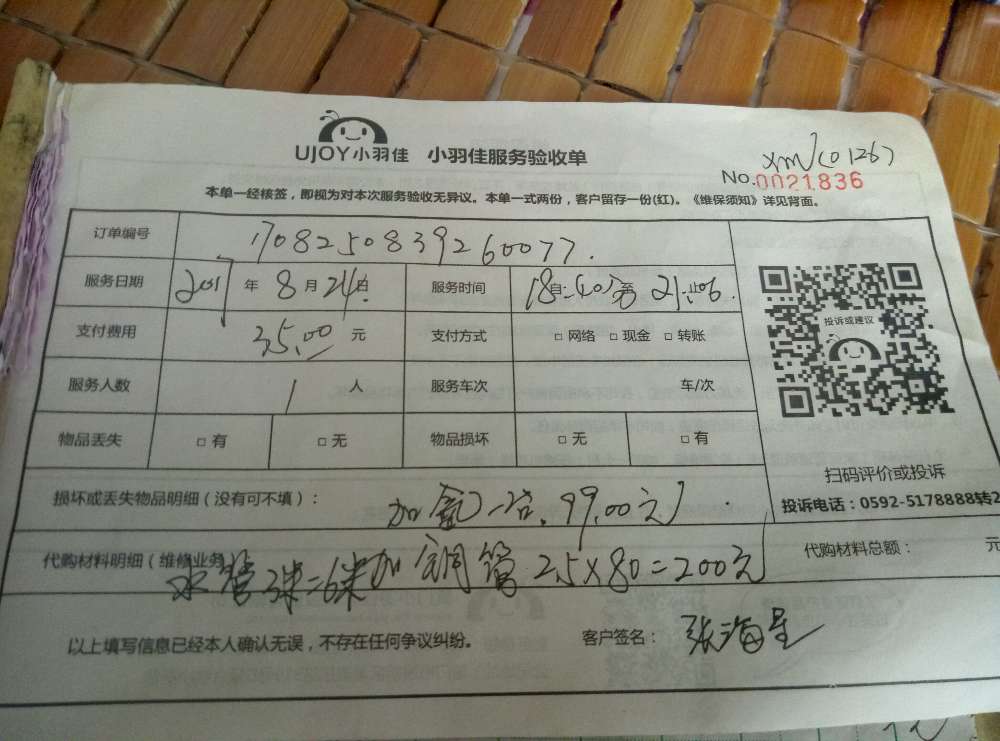 UJOY小羽佳 小羽佳服务验收单
No.0021836
本单一经核签，即视为对本次服务验收无异议。本单一式两份，客户留存一份(红)。《维保须知》详见背面。
订单编号 1708250839260077
服务日期 2017年8月24日 服务时间 18:40至21:06
支付费用 35.00元 支付方式 □网络 □现金 □转账
服务人数 1人 服务车次 车/次
物品丢失 □有 □无 物品损坏 □无 □有
投诉或建议
扫码评价或投诉
投诉电话：0592-5178888转2
损坏或丢失物品明细（没有可不填）： 加 99.00元
代购材料明细（维修业务 水管3米=6米加铜管2.5×80=200元 代购材料总额： 元
以上填写信息已经本人确认无误，不存在任何争议纠纷。 客户签名：张海星